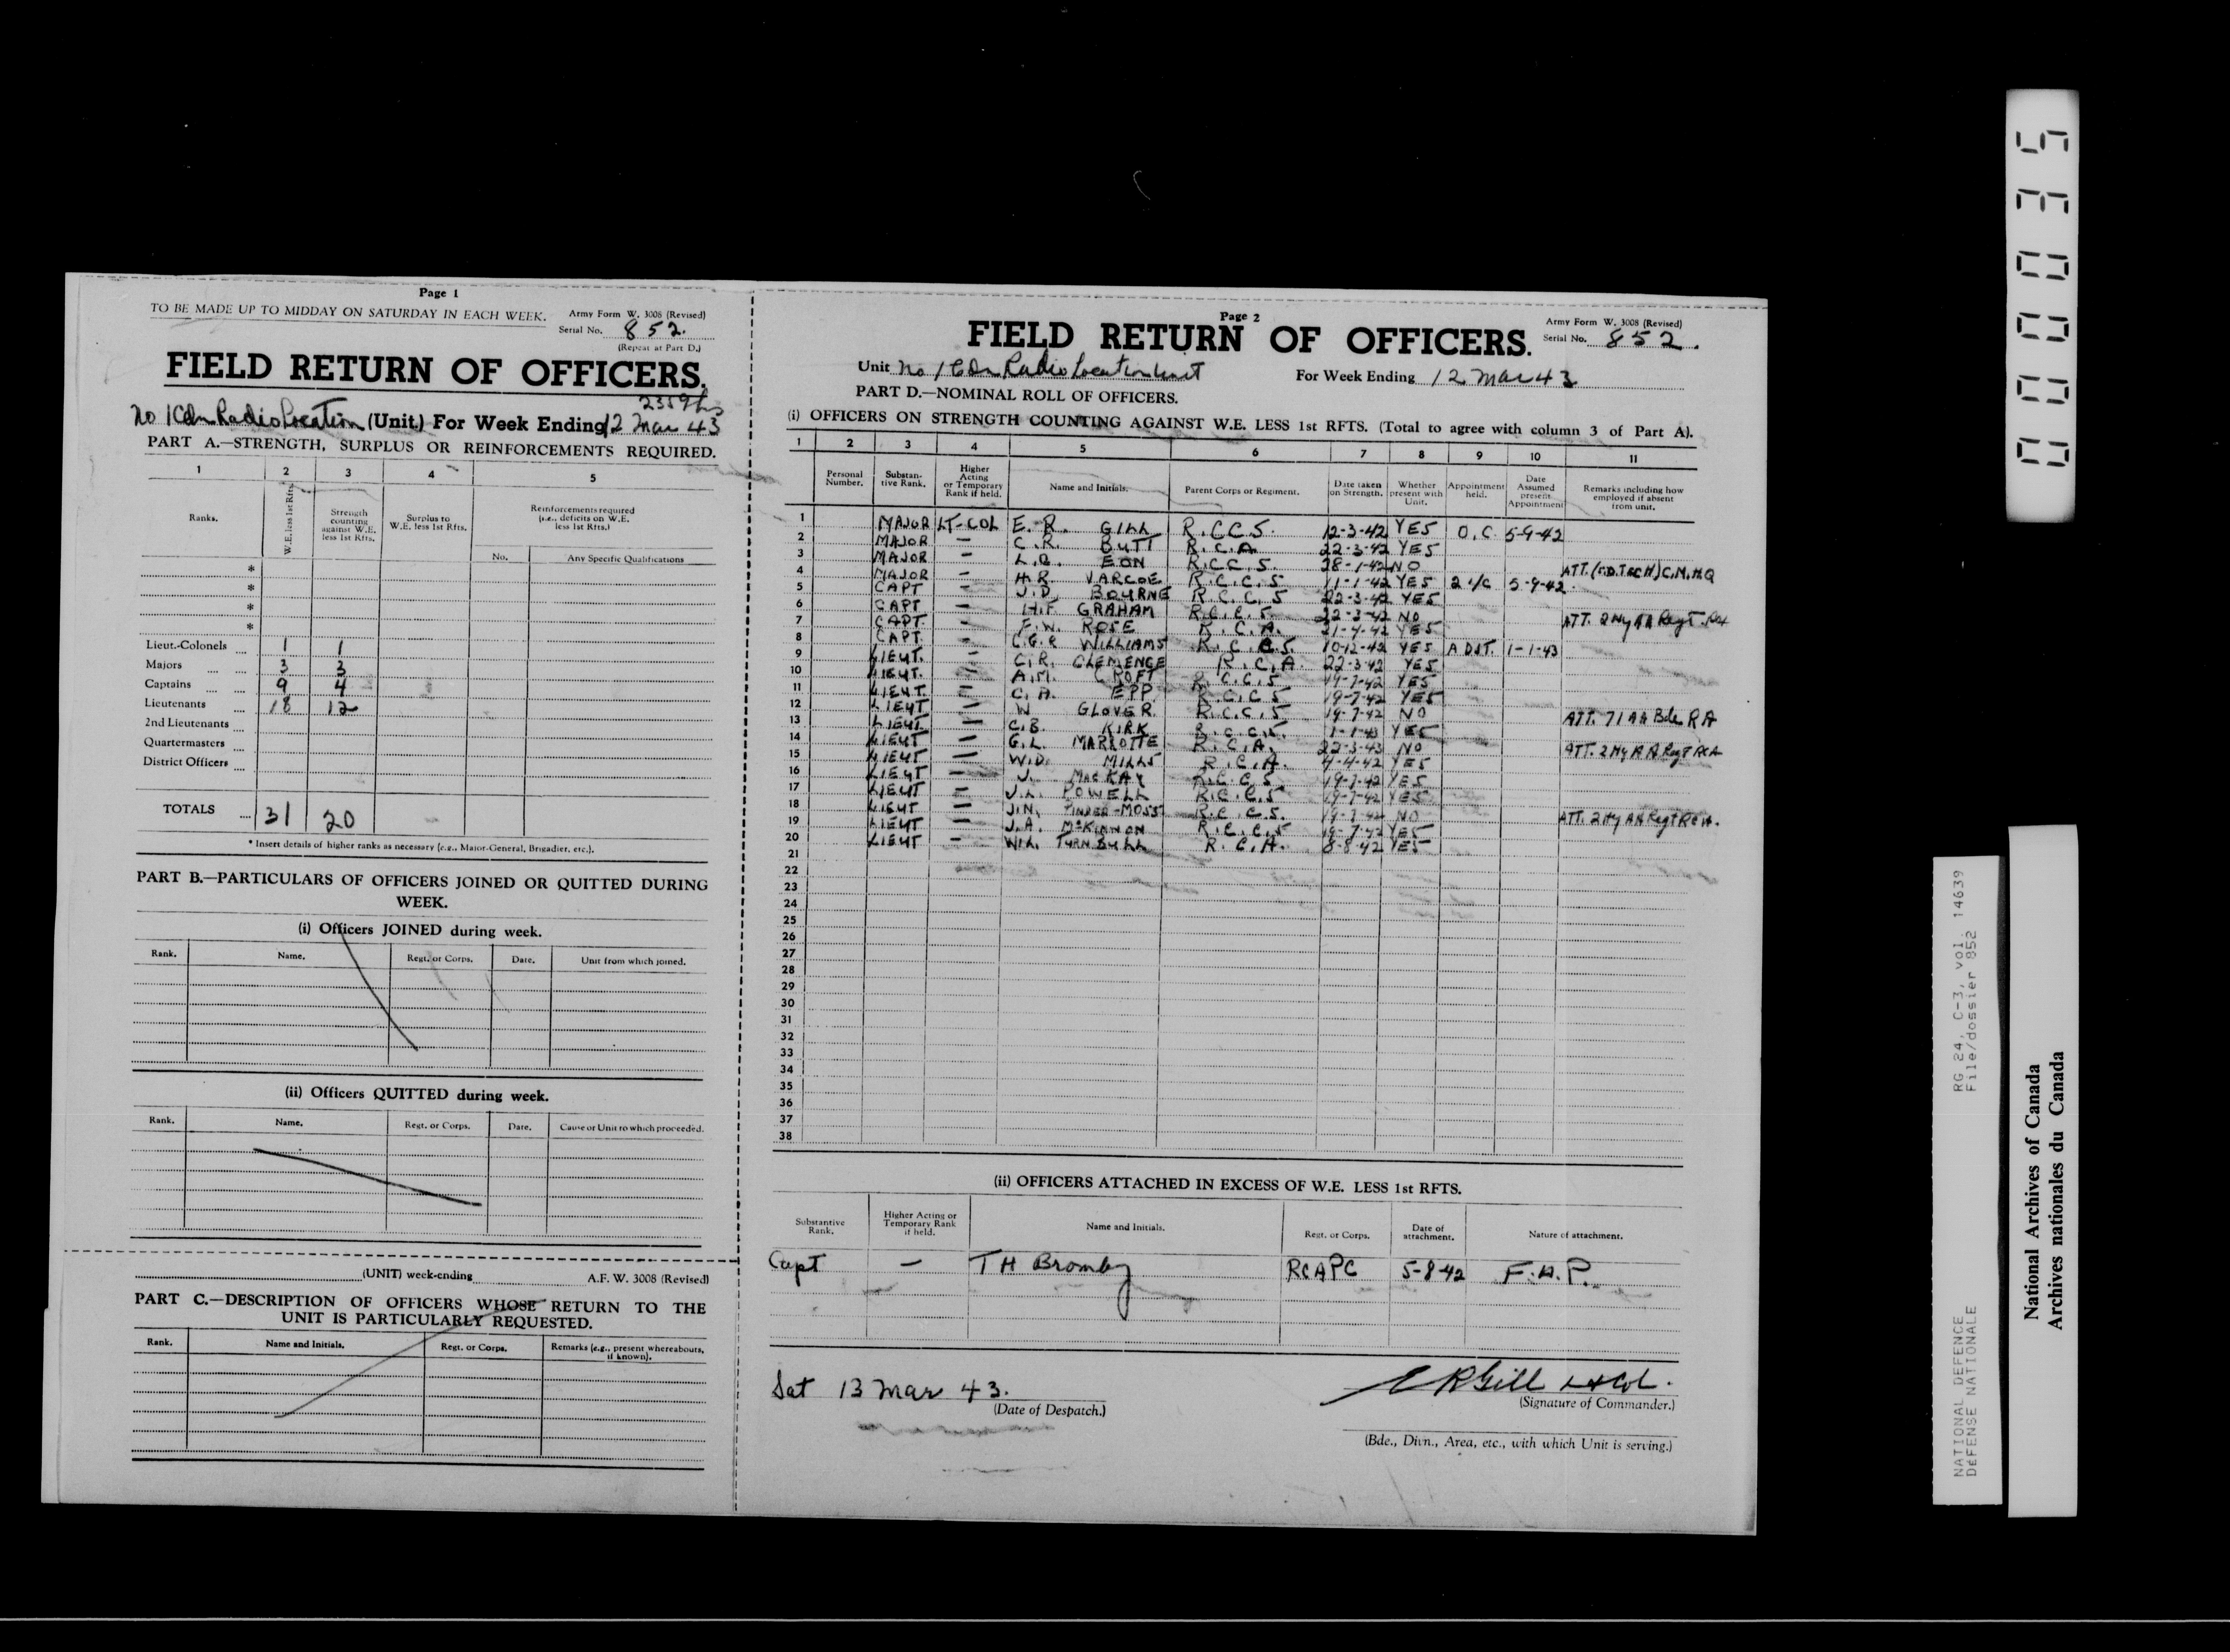 Page 1
TO BE MADE UP TO MIDDAY ON SATURDAY IN EACH WEEK.
Army Form W. 3008 (Revised)
Serial No. 852.
(Repeat at Part D.)
FIELD RETURN OF OFFICERS.
2359 hrs
No 1 Cdn Radio Location (Unit.) For Week Ending 12 Mar 43
PART A.—STRENGTH, SURPLUS OR REINFORCEMENTS REQUIRED.
1 2 3 4 5
Ranks. W.E. less 1st Rfts. Strength counting against W.E. less 1st Rfts. Surplus to W.E. less 1st Rfts. Reinforcements required (i.e., deficits on W.E. less 1st Rfts.)
No. Any Specific Qualifications
*
*
*
*
Lieut.-Colonels .... 1 1
Majors .... .... 3 3
Captains .... .... 9 4
Lieutenants .... 18 12
2nd Lieutenants ....
Quartermasters ....
District Officers ....
TOTALS .... 31 20
* Insert details of higher ranks as necessary (e.g., Major-General, Brigadier, etc.).
PART B.—PARTICULARS OF OFFICERS JOINED OR QUITTED DURING
WEEK.
(i) Officers JOINED during week.
Rank. Name. Regt. or Corps. Date. Unit from which joined.
(ii) Officers QUITTED during week.
Rank. Name. Regt. or Corps. Date. Cause or Unit to which proceeded.
(UNIT) week-ending A.F. W. 3008 (Revised)
PART C.—DESCRIPTION OF OFFICERS WHOSE RETURN TO THE
UNIT IS PARTICULARLY REQUESTED.
Rank. Name and Initials. Regt. or Corps. Remarks (e.g., present whereabouts, if known).
Page 2
Army Form W. 3008 (Revised)
FIELD RETURN OF OFFICERS.
Serial No. 852.
Unit No 1 Cdn Radio Location Unit For Week Ending 12 Mar 43
PART D.—NOMINAL ROLL OF OFFICERS.
(i) OFFICERS ON STRENGTH COUNTING AGAINST W.E. LESS 1st RFTS. (Total to agree with column 3 of Part A).
1 2 3 4 5 6 7 8 9 10 11
Personal Number. Substantive Rank. Higher Acting or Temporary Rank if held. Name and Initials. Parent Corps or Regiment. Date taken on Strength. Whether present with Unit. Appointment held. Date Assumed present Appointment Remarks including how employed if absent from unit.
1 MAJOR LT-COL E.R. GILL R.C.C.S. 12-3-42 YES O.C. 5-9-42
2 MAJOR — C.R. BUTT R.C.A. 22-3-42 YES
3 MAJOR — EON R.C.C.S. 28-1-42 NO ATT. C.M.H.Q
4 MAJOR — H.R. VARCOE R.C.C.S 11-1-42 YES 2 i/c 5-9-42.
5 CAPT — J.D. BOURNE R.C.C.S 22-3-42 YES
6 CAPT — H.F. GRAHAM R.C.C.S 22-3-42 NO ATT. 2 Hy AA Regt
7 CAPT. — F.W. ROSE R.C.A. 21-4-42 YES
8 CAPT. — WILLIAMS R.C.C.S. 10-12-42 YES ADJT. 1-1-43
9 LIEUT. — C.R. CLEMENCE R.C.A. 22-3-42 YES
10 LIEUT. — A.M. CROFT R.C.C.S 19-7-42 YES
11 LIEUT. — C.A. EPP R.C.C.S 19-7-42 YES
12 LIEUT — W GLOVER. R.C.C.S 19-7-42 NO ATT. 71 AA Bde RA
13 LIEUT. — C.B. KIRK R.C.C.S. 1-1-43 YES
14 LIEUT — G.L. MARLOTTE R.C.A. 22-3-43 NO ATT. 2 Hy AA Regt RCA
15 LIEUT — W.D. MILLS R.C.A. 4-4-42 YES
16 LIEUT — J. MacKAY R.C.C.S 19-7-42 YES
17 LIEUT — J.L. POWELL R.C.C.S 19-7-42 YES
18 LIEUT — J.N. PINDER-MOSS R.C.C.S. 19-7-42 NO ATT. 2 Hy AA Regt RCA.
19 LIEUT — J.A. McKINNON R.C.C.S 19-7-42 YES
20 LIEUT — W.L. TURNBULL R.C.A. 8-8-42 YES
21
22
23
24
25
26
27
28
29
30
31
32
33
34
35
36
37
38
(ii) OFFICERS ATTACHED IN EXCESS OF W.E. LESS 1st RFTS.
Substantive Rank. Higher Acting or Temporary Rank if held. Name and Initials. Regt. or Corps. Date of attachment. Nature of attachment.
Capt — T H Bromby RCAPC 5-8-42 F.A.P.
Sat 13 Mar 43. (Date of Despatch.)
E R Gill Lt Col. (Signature of Commander.)
(Bde., Divn., Area, etc., with which Unit is serving.)
000035
NATIONAL DEFENCE RG 24, C-3, vol. 14639
DÉFENSE NATIONALE File/dossier 852
National Archives of Canada
Archives nationales du Canada